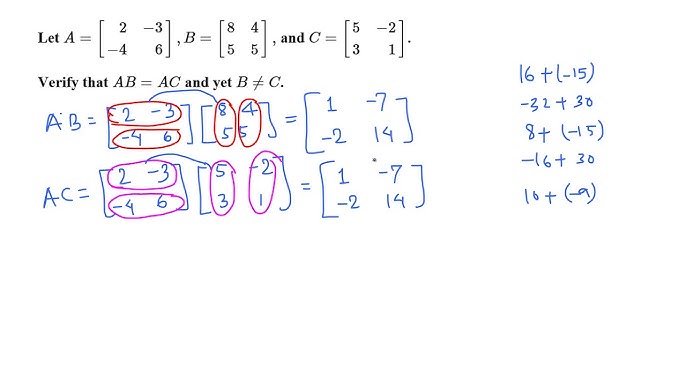 Let A = [ 2 −3 −4 6 ], B = [ 8 4 5 5 ], and C = [ 5 −2 3 1 ].
Verify that AB = AC and yet B ≠ C.
AB = [ 2 −3 −4 6 ] [ 8 4 5 5 ] = [ 1 −7 −2 14 ]
AC = [ 2 −3 −4 6 ] [ 5 −2 3 1 ] = [ 1 −7 −2 14 ]
16 + (−15)
−32 + 30
8 + (−15)
−16 + 30
10 + (−9)